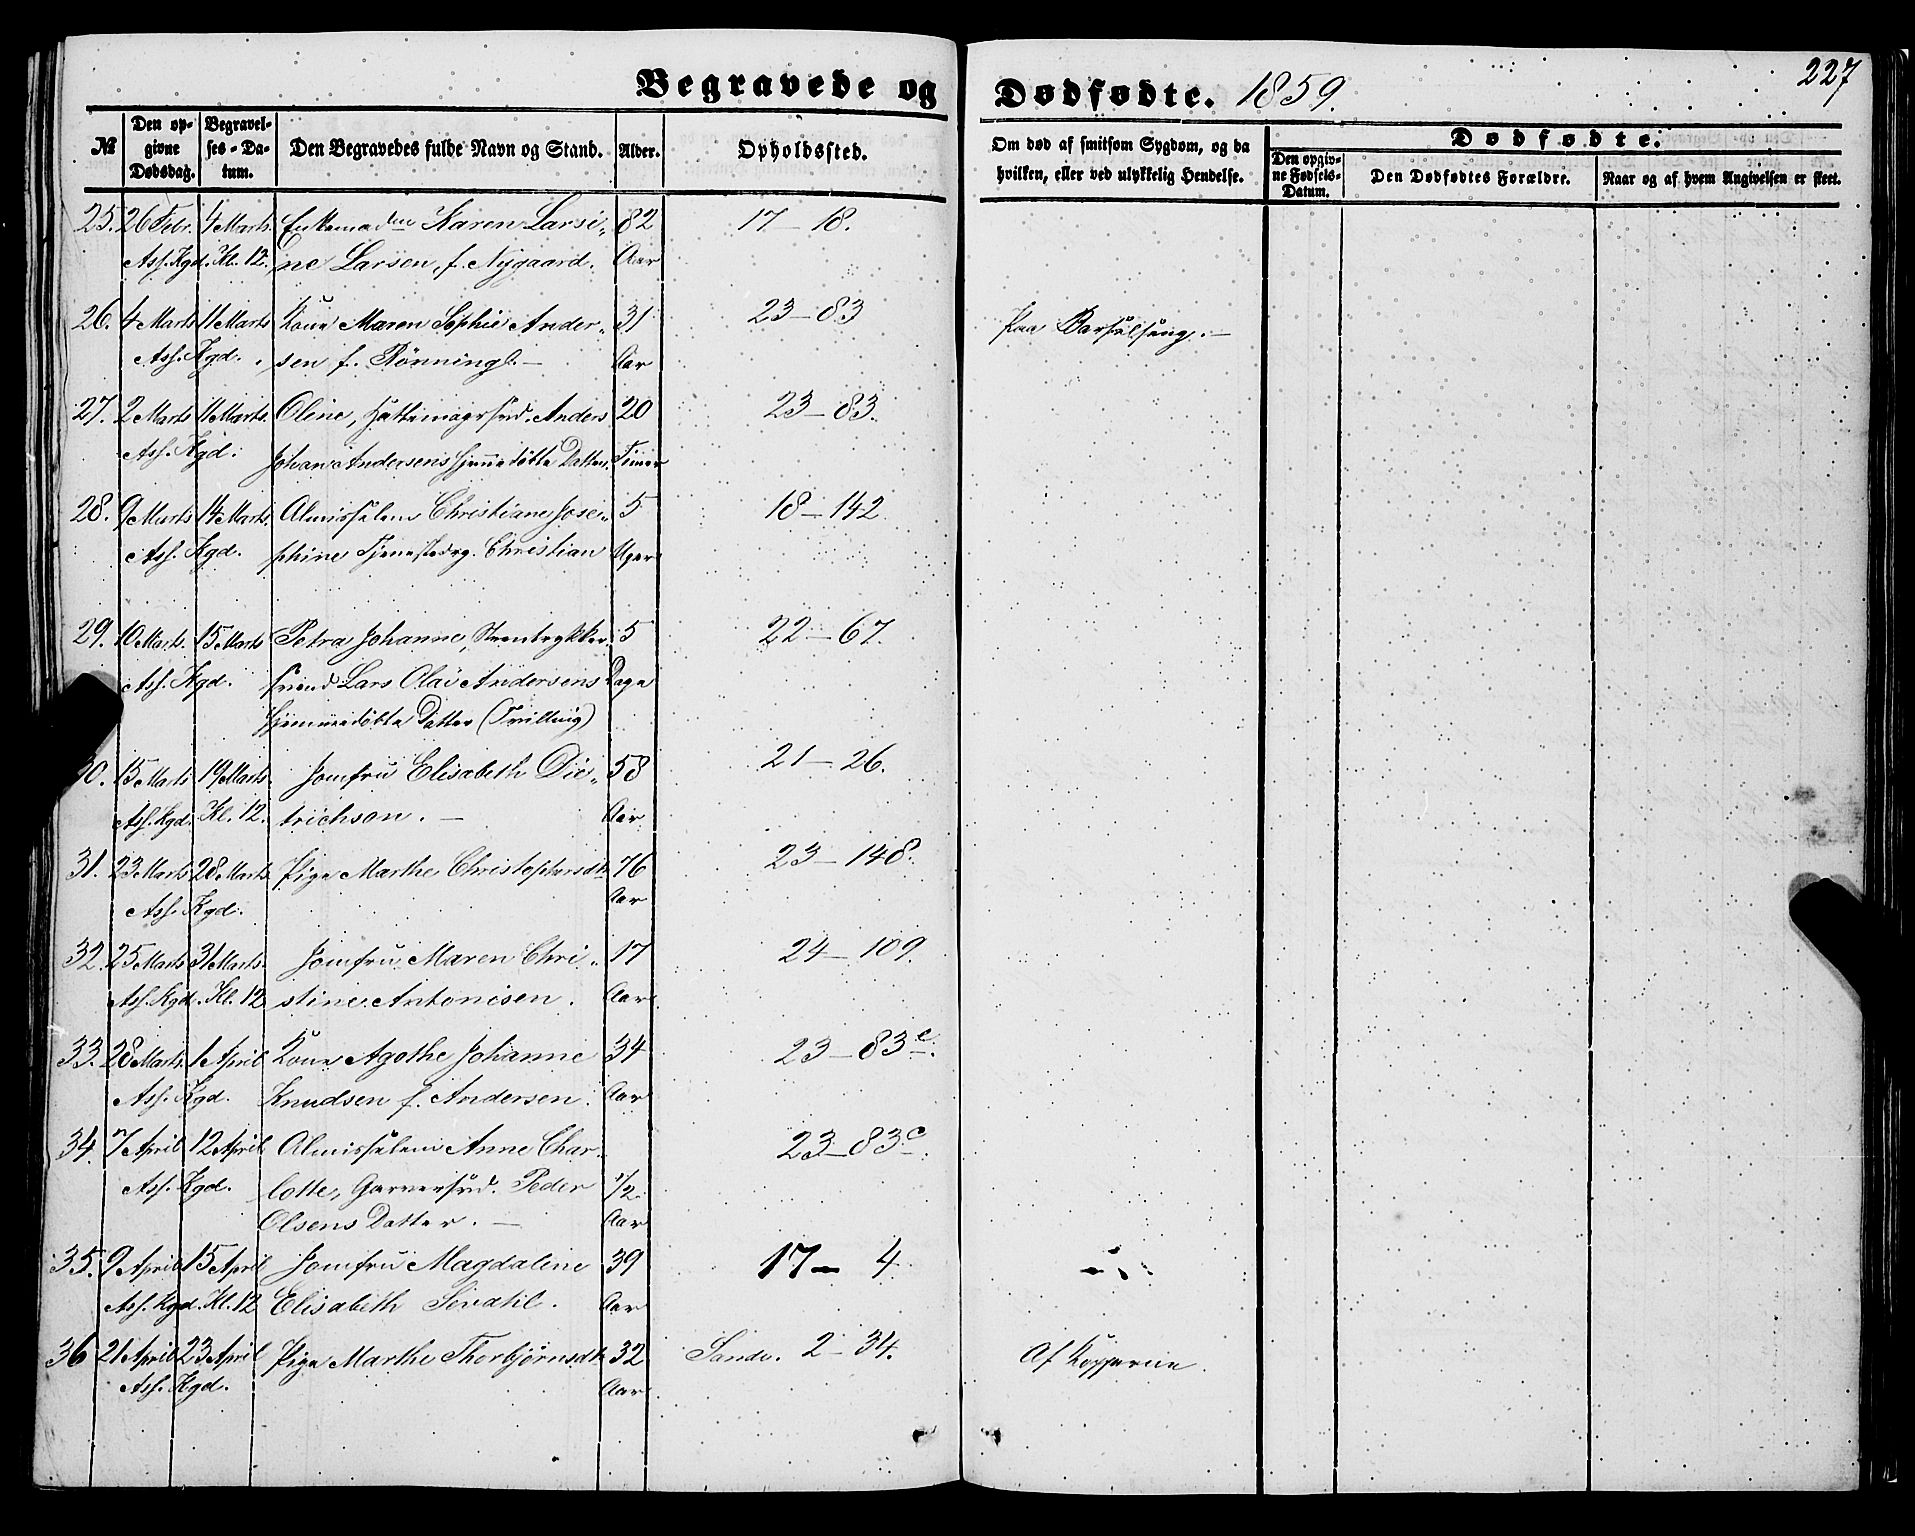 Begravede og Dødfødte. 1859. 227
№ Den opgivne Dødsdag. Begravelses-Datum. Den Begravedes fulde Navn og Stand. Alder. Opholdssted. Om død af smitsom Sygdom, og da hvilken, eller ved ulykkelig Hendelse. Dødfødte.
Den opgivne Fødsels-Datum. Den Dødfødtes Forældre. Naar og af hvem Angivelsen er skeet.
25. 26 Febr. 4 Marts. Enkemadm Karen Larsi- 82 17-18.
Ass. Kgd. Kl. 12. ne Larsen, f. Nygaard. Aar
26. 4 Marts 11 Marts Kone Maren Sophie Ander- 31 23-83 Paa Barselseng.-
Ass. Kgd. sen f. Rønning.- Aar
27. 2 Marts 11 Marts. Oline, Hattemagersvd. Anders 20 23-83.
Ass. Kgd. Johan Andersens hjemmedøbte Datter. Timer
28. 9 Marts 14 Marts. Almisselem Christiane Jose- 5 18-142.
Ass. Kgd. phine Tjenestedrg. Christian Uger
29. 10 Marts. 15 Marts Petra Johanne, Steentrykker- 5 22-67.
Ass. Kgd. svend Lars Olai Andersens Dage
hjemmedøbte Datter (Tvilling)
30. 15 Marts 19 Marts. Jomfru Elisabeth Die- 58 21-26.
Ass. Kgd. Kl. 12. trichson.- Aar
31. 23 Marts 28 Marts. Pige Marthe Christophersdtr 76 23-148.
Ass. Kgd. Aar
32. 25 Marts 31 Marts. Jomfru Maren Chri- 17 24-109.
Ass. Kgd. Kl. 12 stine Antonisen. Aar
33. 28 Marts. 1 April Kone Agothe Johanne 34 23-83c.
Ass. Kgd. Knudsen f. Andersen. Aar
34. 7 April 12 April Almisselem Anne Char- 23-83c.
Ass. Kgd. lotte, Garversvd. Peder 1/2
Olsens Datter.- Aar
35. 9 April 15 April Jomfru Magdaline 39 17-4.
Ass. Kgd. Kl. 12 Elisabeth Aar
36 21 April 23 April Pige Marthe Thorbjørnsdtr 32 Sandv. 2-34. Af Kopperne.
Ass. Kgd. Aar